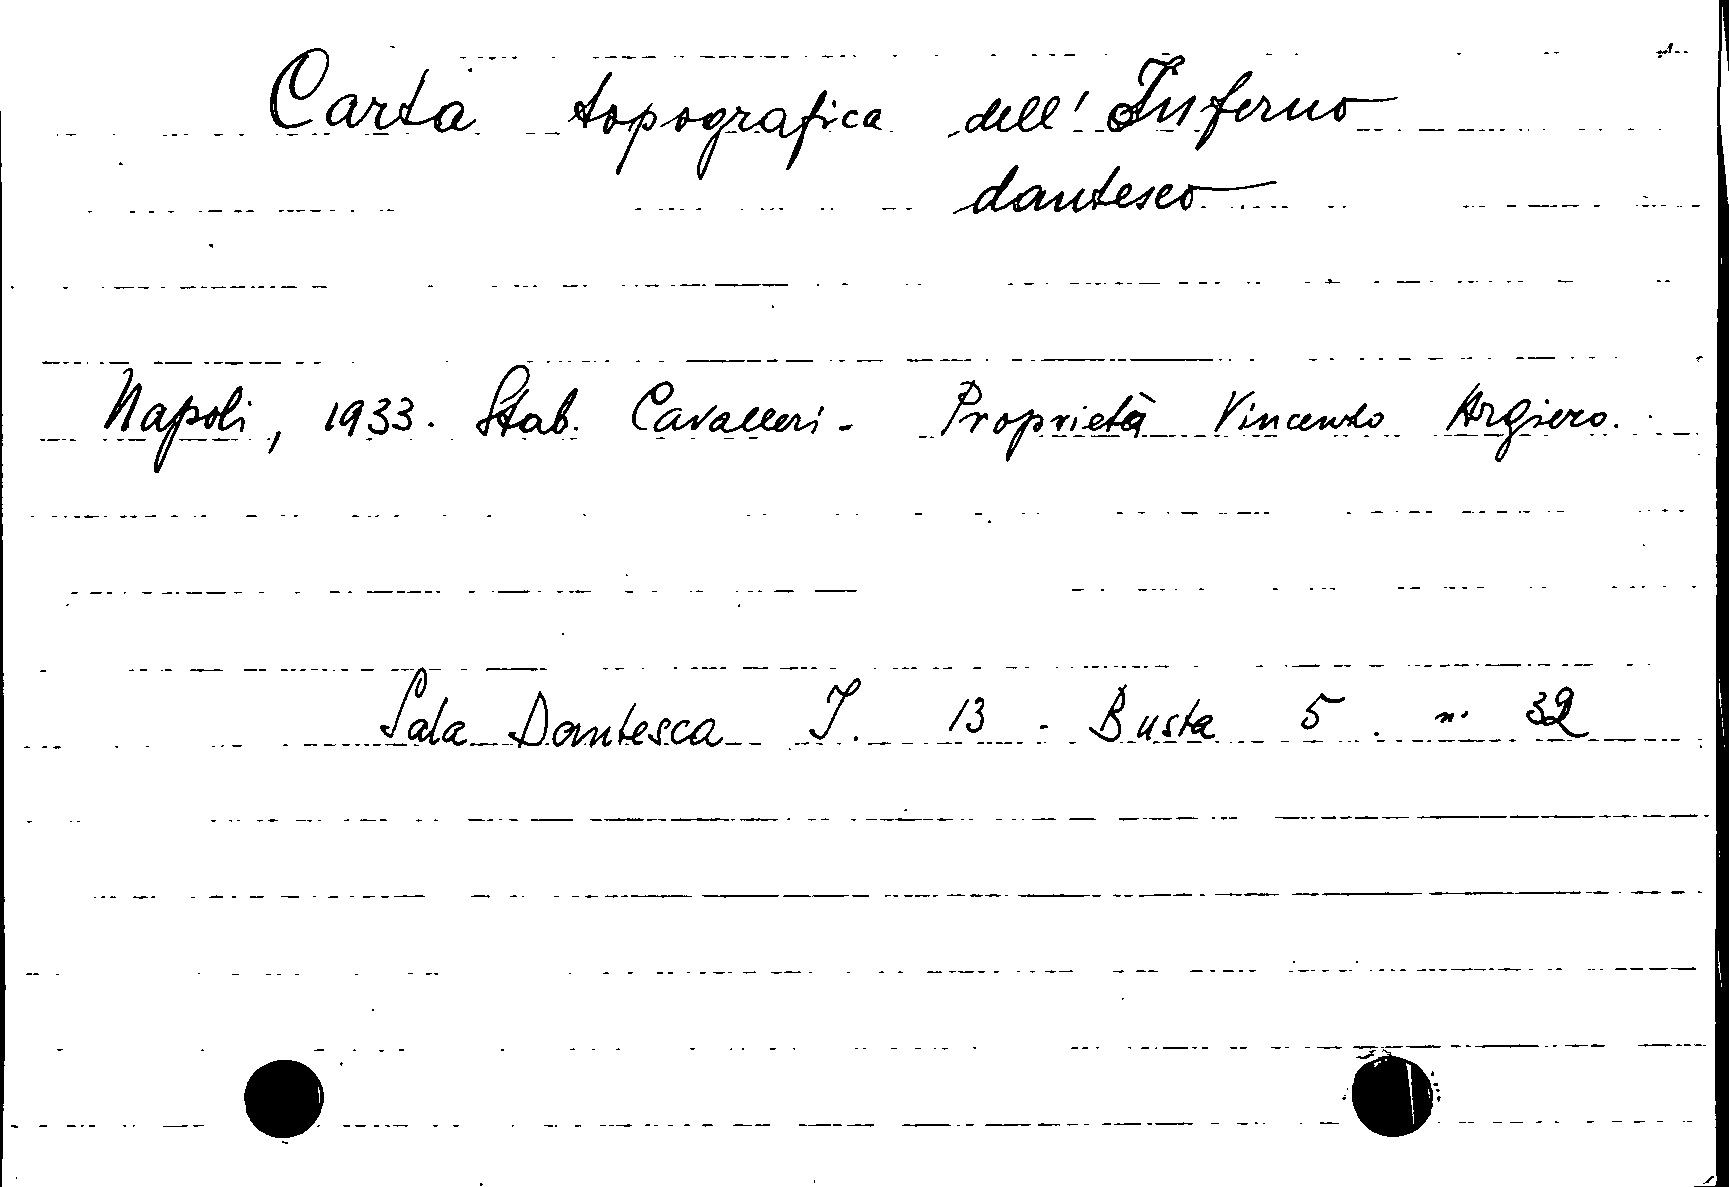 Carta topografica dell'Inferno
dantesco
Napoli, 1933. Stab. Cavalleri - Proprietà Vincenzo Argiero.
Sala Dantesca I. 13 - Busta 5. n. 32